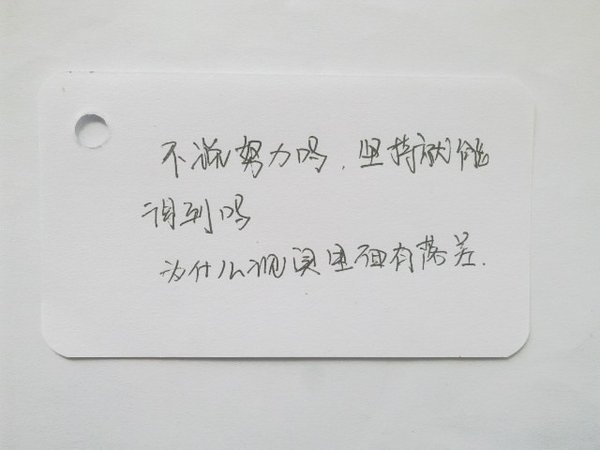 不说努力吗，坚持就能
得到吗
为什么现实里面有落差.